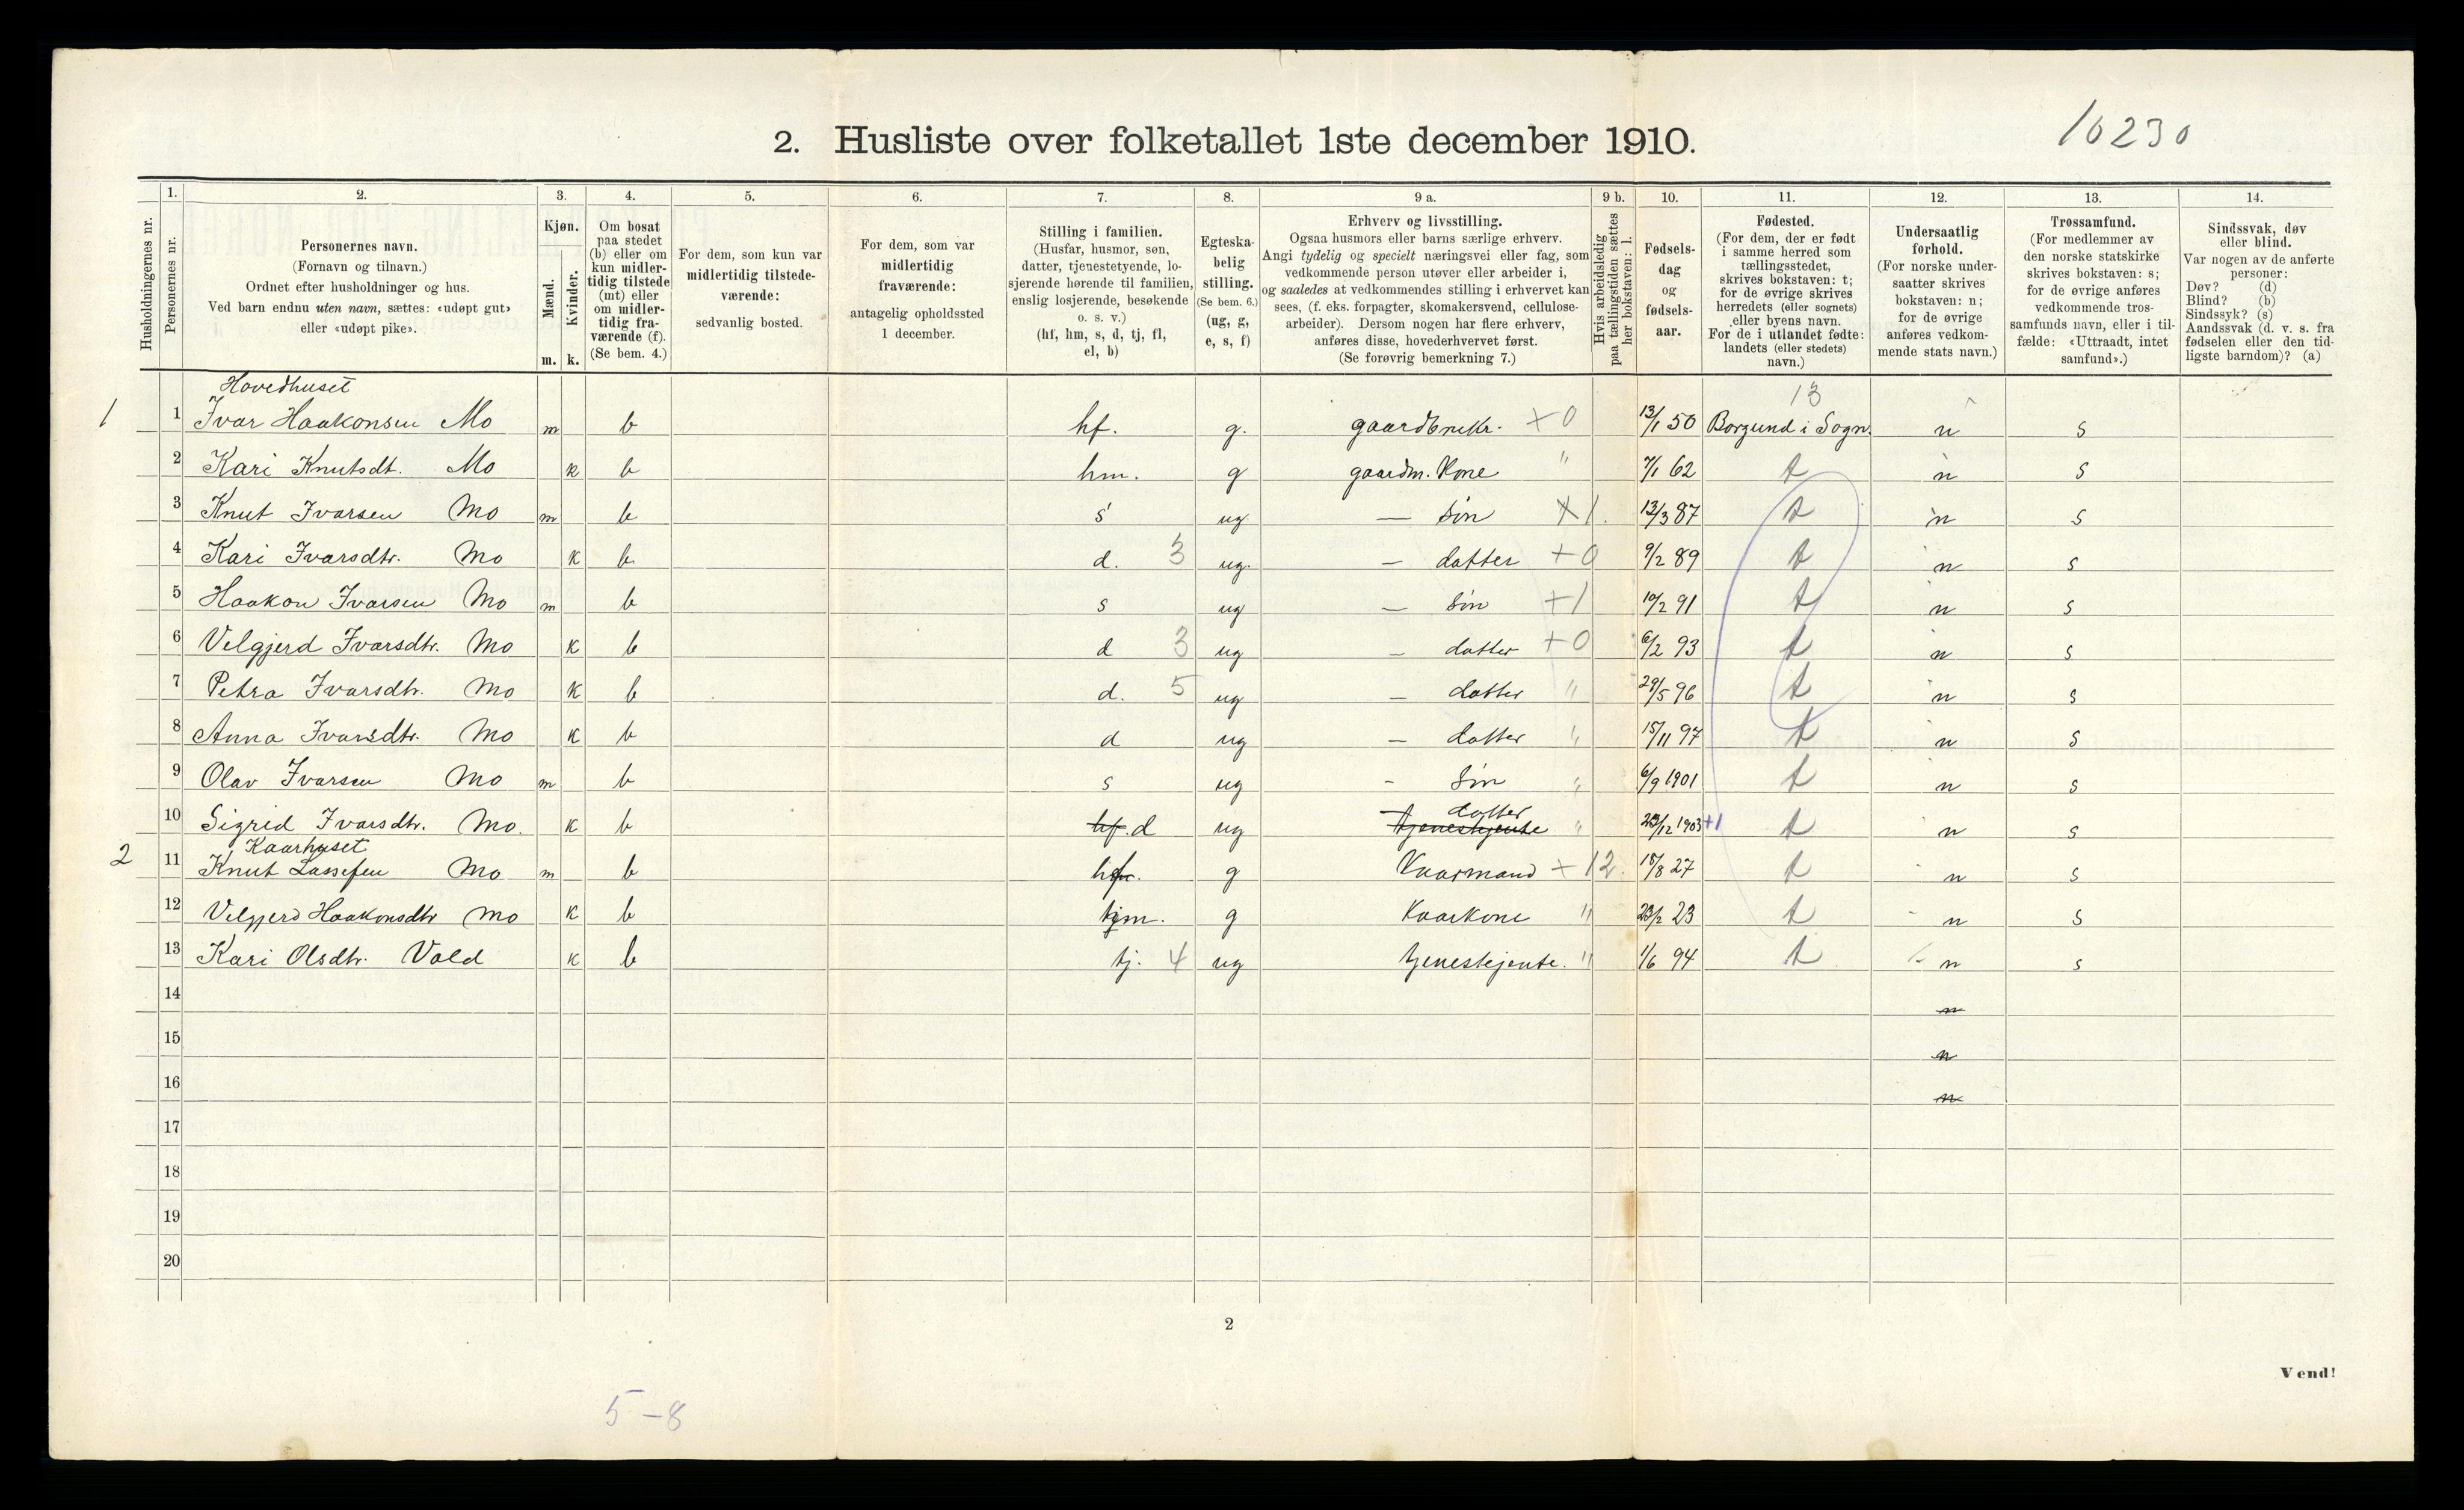 2. Husliste over folketallet 1ste december 1910.
10230
Husholdningernes nr.
1. Personernes nr.
2. Personernes navn. (Fornavn og tilnavn.) Ordnet efter husholdninger og hus. Ved barn endnu uten navn, sættes: «udøpt gut» eller «udøpt pike».
3. Kjøn. Mænd. m. Kvinder. k.
4. Om bosat paa stedet (b) eller om kun midlertidig tilstede (mt) eller om midlertidig fraværende (f). (Se bem. 4.)
5. For dem, som kun var midlertidig tilstedeværende: sedvanlig bosted.
6. For dem, som var midlertidig fraværende: antagelig opholdssted 1 december.
7. Stilling i familien. (Husfar, husmor, søn, datter, tjenestetyende, losjerende hørende til familien, enslig losjerende, besøkende o. s. v.) (hf, hm, s, d, tj, fl, el, b)
8. Egteskabelig stilling. (Se bem. 6.) (ug, g, e, s, f)
9 a. Erhverv og livsstilling. Ogsaa husmors eller barns særlige erhverv. Angi tydelig og specielt næringsvei eller fag, som vedkommende person utøver eller arbeider i, og saaledes at vedkommendes stilling i erhvervet kan sees, (f. eks. forpagter, skomakersvend, cellulosearbeider). Dersom nogen har flere erhverv, anføres disse, hovederhvervet først. (Se forøvrig bemerkning 7.)
9 b. Hvis arbeidsledig paa tællingstiden sættes her bokstaven: l.
10. Fødselsdag og fødselsaar.
11. Fødested. (For dem, der er født i samme herred som tællingsstedet, skrives bokstaven: t; for de øvrige skrives herredets (eller sognets) eller byens navn. For de i utlandet fødte: landets (eller stedets) navn.)
12. Undersaatlig forhold. (For norske undersaatter skrives bokstaven: n; for de øvrige anføres vedkommende stats navn.)
13. Trossamfund. (For medlemmer av den norske statskirke skrives bokstaven: s; for de øvrige anføres vedkommende trossamfunds navn, eller i tilfælde: «Uttraadt, intet samfund».)
14. Sindssvak, døv eller blind. Var nogen av de anførte personer: Døv? (d) Blind? (b) Sindssyk? (s) Aandssvak (d. v. s. fra fødselen eller den tidligste barndom)? (a)
Hovedhuset 13
1 1 Ivar Haakonsen Mo m b hf. g. gaardbrukr. + 0 13/1 50 Borgund i Sogn. n s
2 Kari Knutsdt. Mo k b hm. g gaardm. Kone " 7/1 62 t n s
3 Knut Ivarsen Mo m b s ug — Søn + 1. 13/3 87 t n s
4 Kari Ivarsdtr. Mo k b d. 3 ug. — datter + 0 9/2 89 t n s
5 Haakon Ivarsen Mo m b s ug — Søn + 1 10/2 91 t n s
6 Velgjerd Ivarsdtr. Mo k b d 3 ug — datter + 0 6/2 93 t n s
7 Petra Ivarsdtr. Mo k b d. 5 ug — datter " 29/5 96 t n s
8 Anna Ivarsdtr. Mo k b d ug — datter " 15/11 97 t n s
9 Olav Ivarsen Mo m b s ug - Søn " 6/9 1901 t n s
10 Sigrid Ivarsdtr. Mo. k b hf. d ug tjenestjente datter " 23/12 1903 +1 t n s
Kaarhuset
2 11 Knut Lassesen Mo m b hf. g Kaarmand + 12. 18/8 27 t n s
12 Velgjerd Haakonsdtr Mo k b hm. g Kaarkone " 23/2 23 t n s
13 Kari Olsdtr. Vold k b tj. 4 ug tjenestejente. " 1/6 94 t n s
14 n
15 n
16 n
17
18
19
20
2
Vend!
5-8